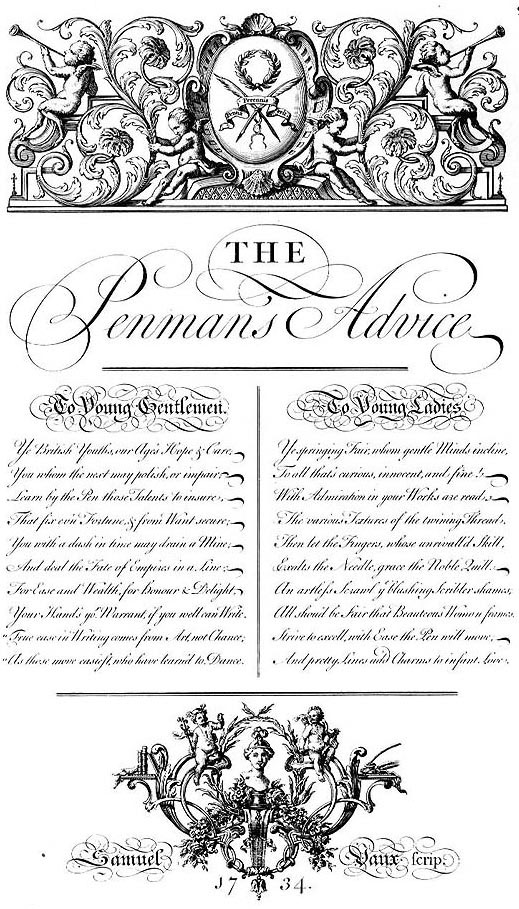 Perennis
THE
Penman's Advice
To Young Gentlemen.
Ye British Youths, our Age's Hope & Care,
You whom the next may polish, or impair;
Learn by the Pen those Talents to insure,
That fix ev'n Fortune, & from Want secure;
You with a dash in time may drain a Mine,
And deal the Fate of Empires in a Line;
For Ease and Wealth, for Honour & Delight,
Your Hand's yo.r Warrant, if you well can Write.
"True ease in Writing comes from Art, not Chance;
"As those move easiest, who have learn'd to Dance.
To Young Ladies
Ye springing Fair, whom gentle Minds incline,
To all that's curious, innocent, and fine!
With Admiration in your Works are read,
The various Textures of the twining Thread,
Then let the Fingers, whose unrivall'd Skill,
Exalts the Needle, grace the Noble Quill.
An artless Scrawl y.e blushing Scribler shames;
All shou'd be Fair that Beauteous Woman frames.
Strive to excell, with Ease the Pen will move;
And pretty Lines add Charms to infant Love.
Samuel Vaux scrip:
1734.